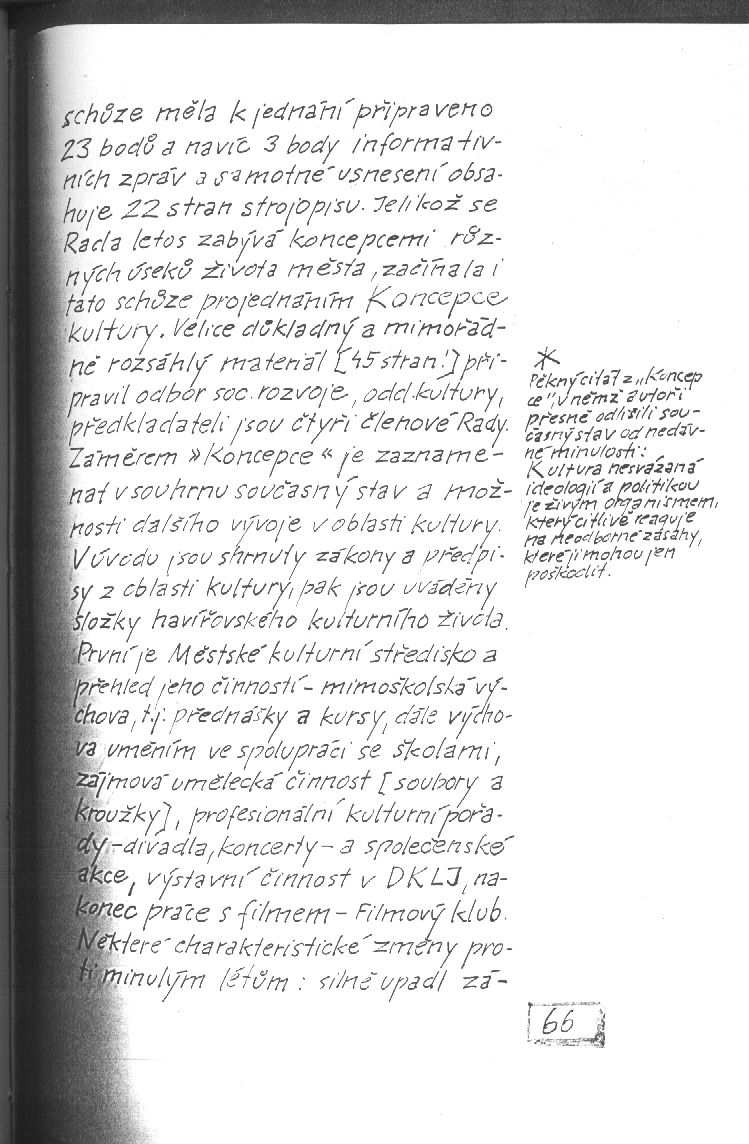 schůze měla k jednání připraveno
23 bodů a navíc 3 body informativ-
ních zpráv a samotné usnesení obsa-
huje 22 stran strojopisu. Jelikož se
Rada letos zabývá koncepcemi růz-
ných úseků života města, začínala i
tato schůze projednáním Koncepce
kultury. Velice důkladný a mimořád-
ně rozsáhlý materiál [45 stran!] při-
pravil odbor soc. rozvoje, odd. kultury,
předkladateli jsou čtyři členové Rady.
Záměrem »Koncepce« je zazname-
nat v souhrnu současný stav a mož-
nosti dalšího vývoje v oblasti kultury.
V úvodu jsou shrnuty zákony a předpi-
sy z oblasti kultury, pak jsou uváděny
složky havířovského kulturního života.
První je Městské kulturní středisko a
přehled jeho činností - mimoškolská vý-
chova, tj. přednášky a kursy, dále výcho-
va uměním ve spolupráci se školami,
zájmová umělecká činnost [soubory a
kroužky], profesionální kulturní pořa-
dy - divadla, koncerty - a společenské
akce, výstavní činnost v DKLJ, na-
konec práce s filmem - Filmový klub.
Některé charakteristické změny pro-
ti minulým létům : silně upadl zá-
*
Pěkný citát z „Koncep
ce", v němž autoři
přesně odlišili sou-
časný stav od nedáv-
né minulosti:
Kultura nesvázaná
ideologií a politikou
je živým organismem,
který citlivě reaguje
na neodborné zásahy,
které ji mohou jen
poškodit.
66